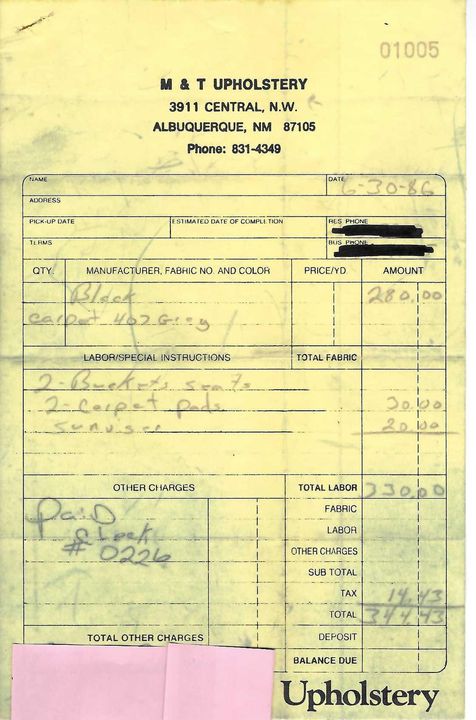 01005
M & T UPHOLSTERY
3911 CENTRAL, N.W.
ALBUQUERQUE, NM 87105
Phone: 831-4349
NAME DATE 6-30-86
ADDRESS
PICK-UP DATE ESTIMATED DATE OF COMPLETION RES PHONE
TERMS BUS PHONE
QTY. MANUFACTURER, FABRIC NO. AND COLOR PRICE/YD. AMOUNT
Black 280.00
carpet 407 Grey
LABOR/SPECIAL INSTRUCTIONS TOTAL FABRIC
2-Buckets seats
2-carpet pads 30.00
sunviser 20.00
OTHER CHARGES TOTAL LABOR 330.00
Paid FABRIC
check LABOR
# 0226 OTHER CHARGES
SUB TOTAL
TAX 14.43
TOTAL 344.43
TOTAL OTHER CHARGES DEPOSIT
BALANCE DUE
Upholstery